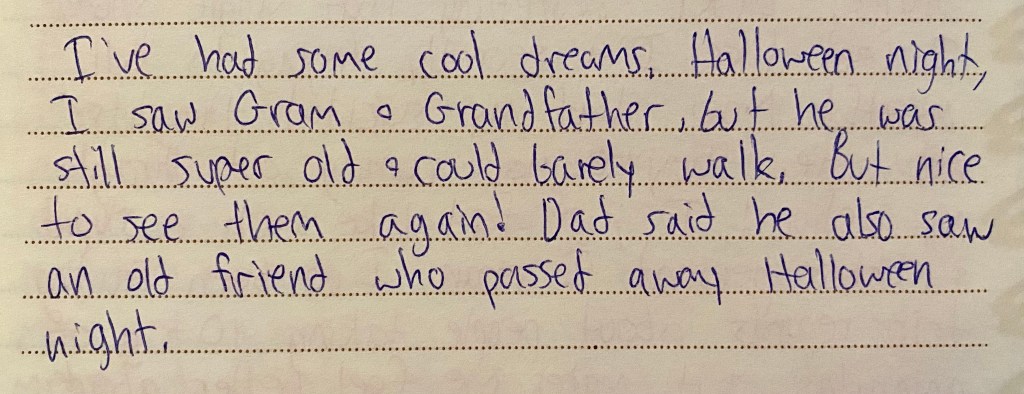 I've had some cool dreams. Halloween night,
I saw Gram & Grandfather, but he was
still super old & could barely walk. But nice
to see them again! Dad said he also saw
an old friend who passed away Halloween
night.